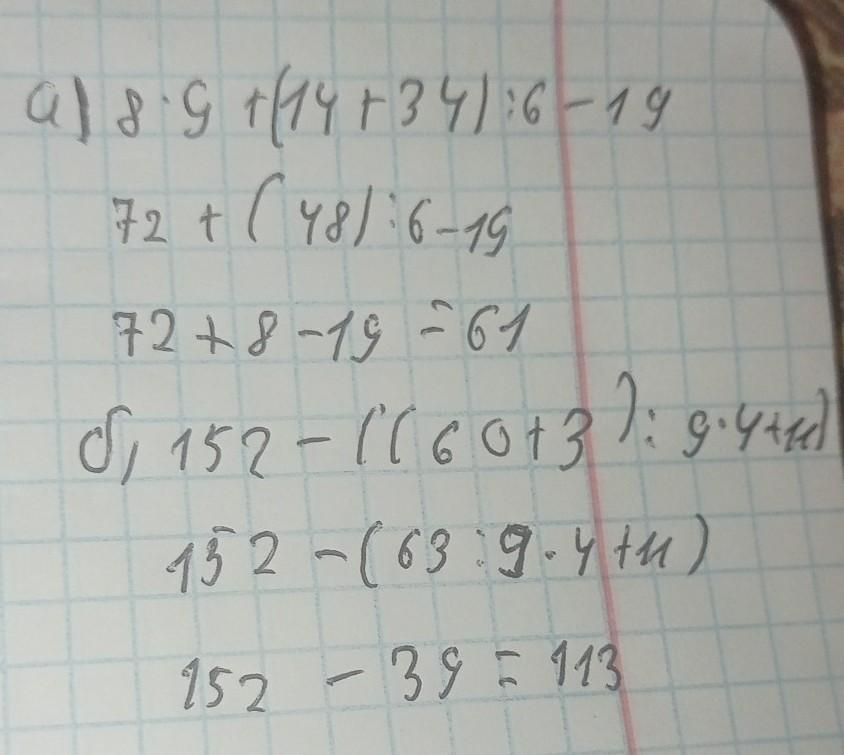 а) 8·9+(14+34):6-19
72+(48):6-19
72+8-19=61
б) 152-((60+3):9·4+11)
152-(63:9·4+11)
152-39=113